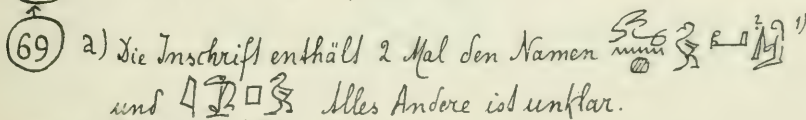 69 a) Die Inschrift enthält 2 Mal den Namen
und Alles Andere ist unklar.